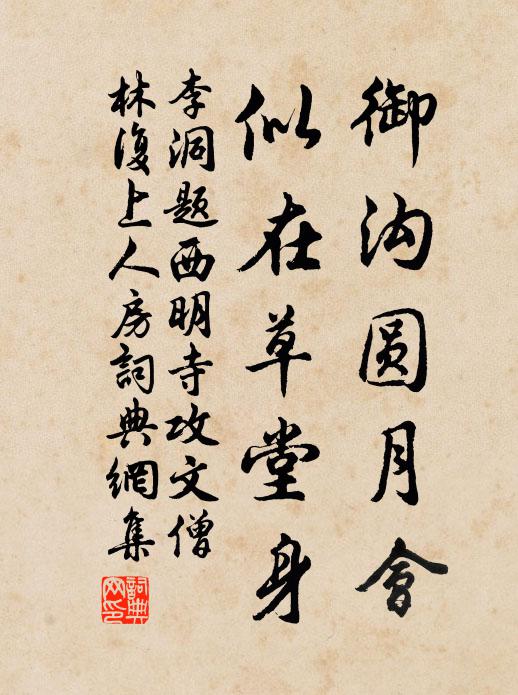 御沟圆月會
似在草堂身
李洞题西明寺攻文僧
林復上人房詞典網集
詞典網印